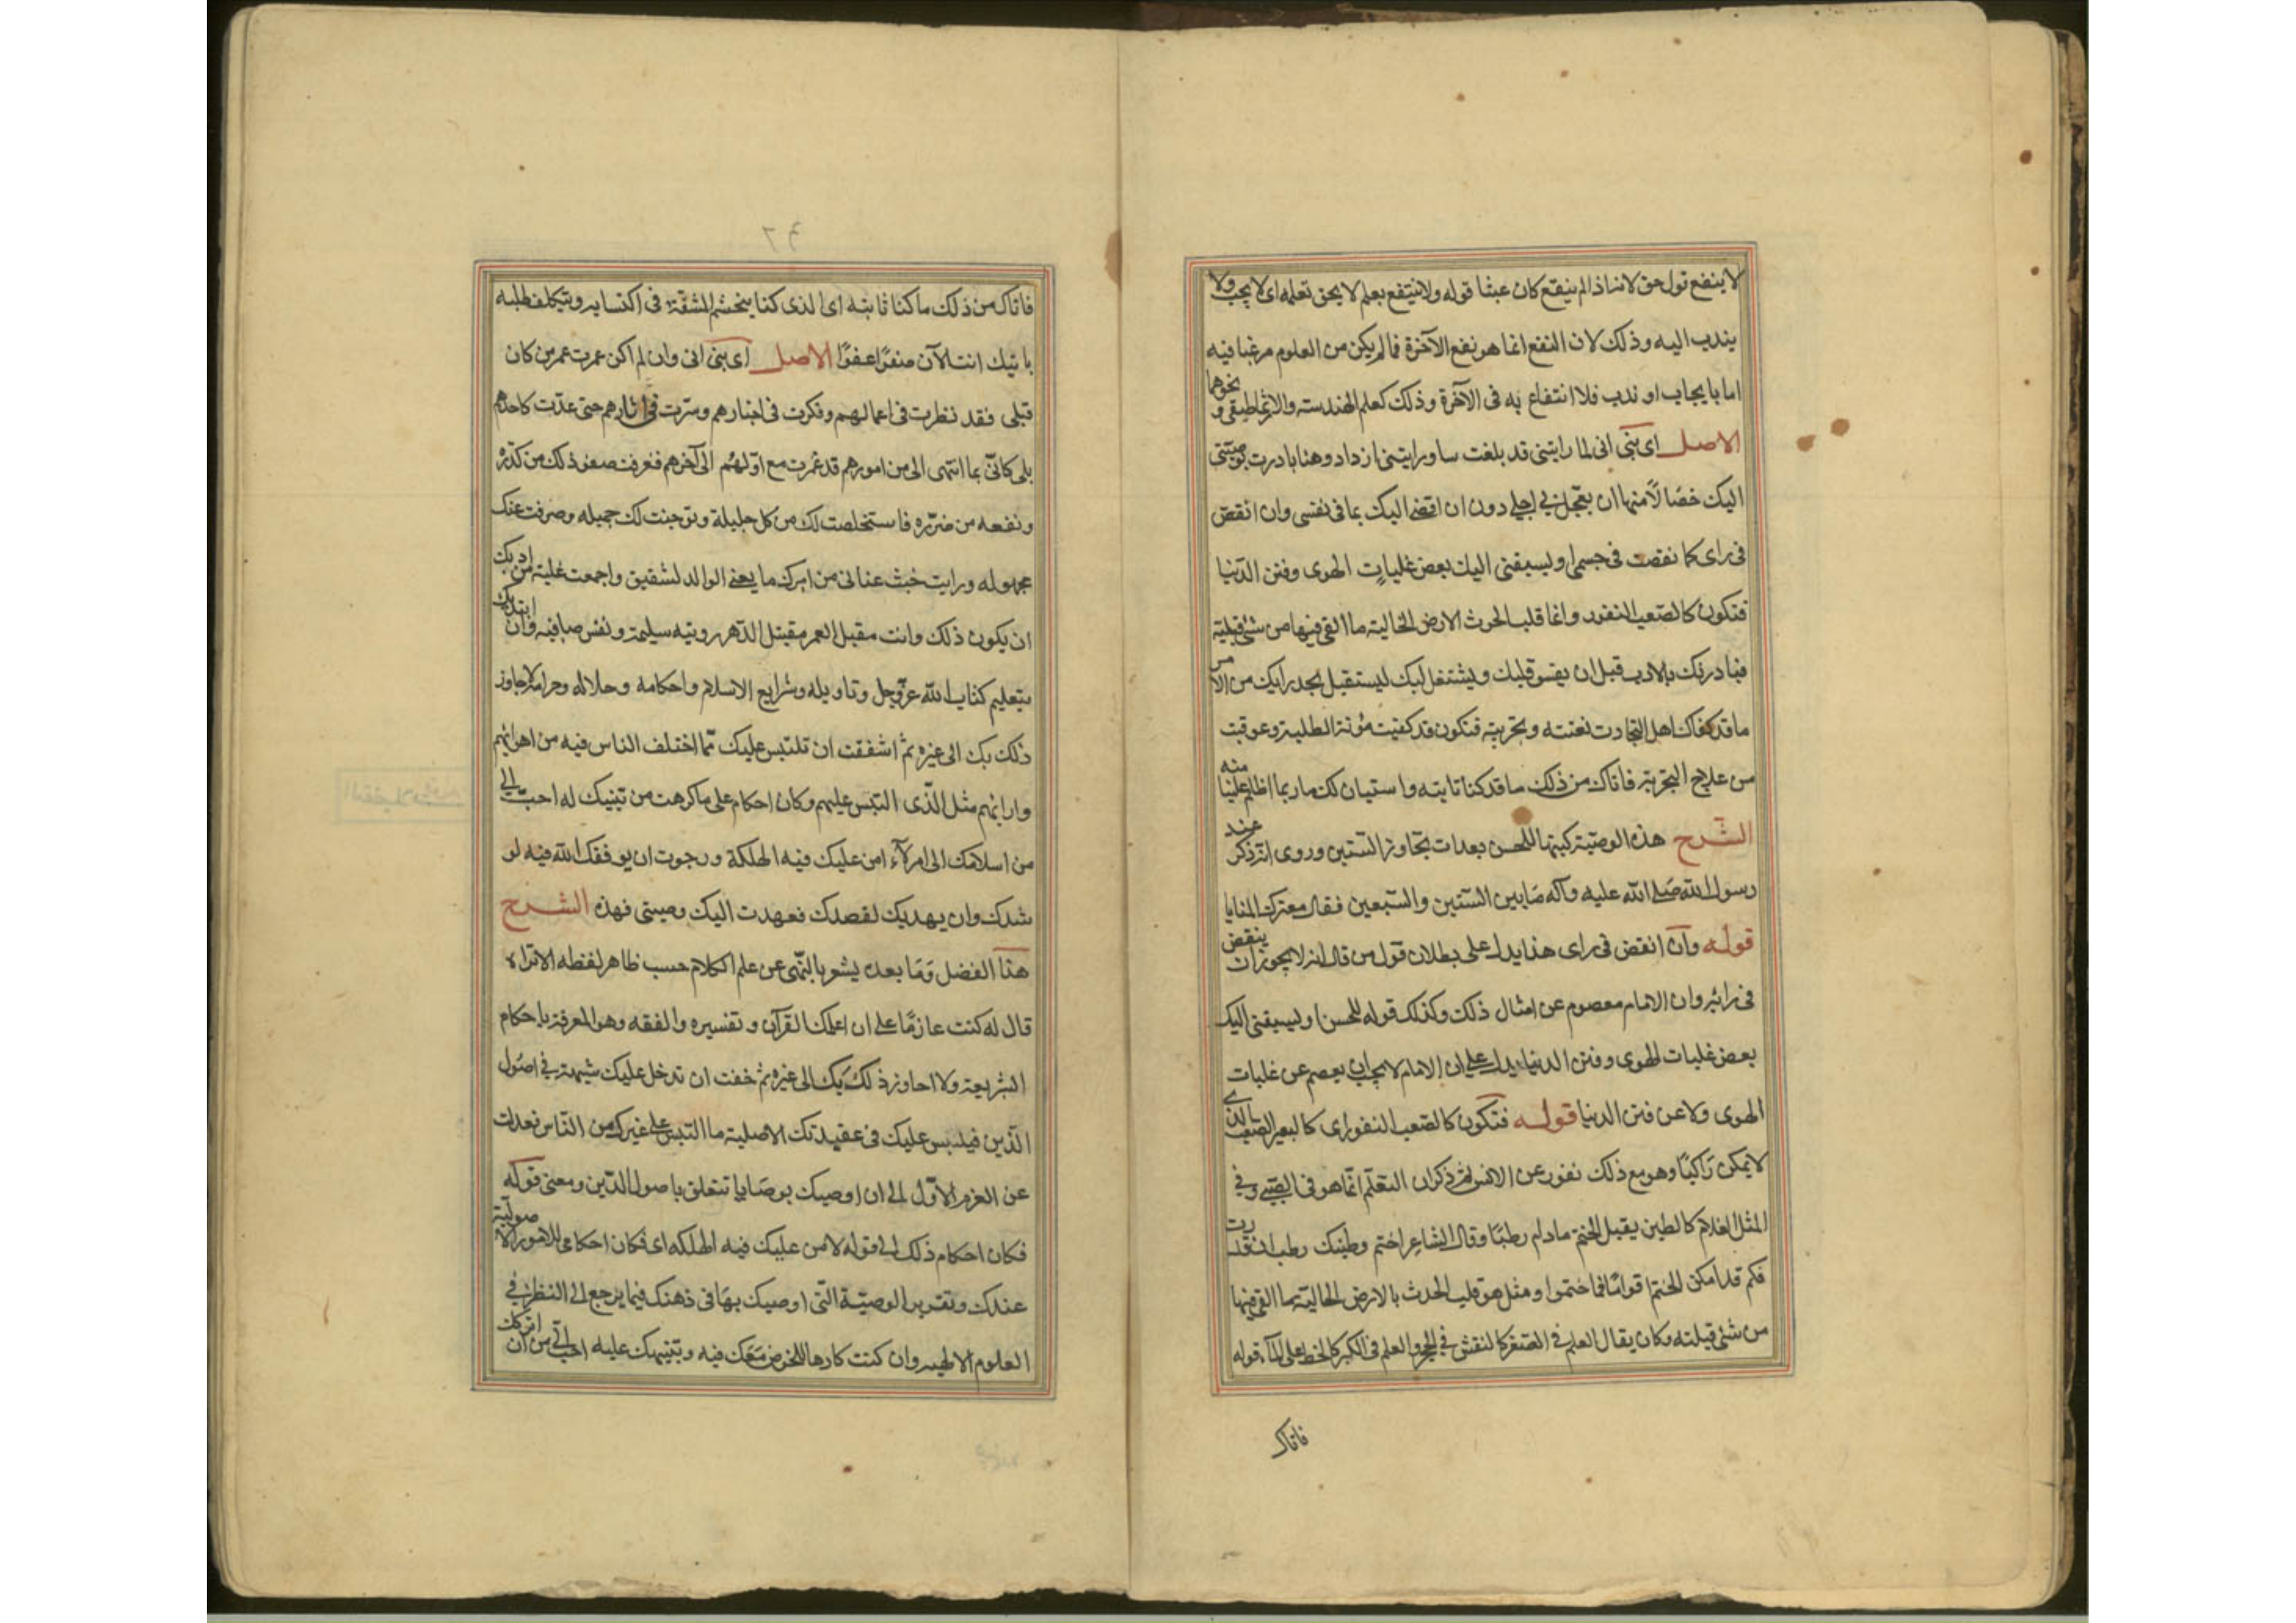 لا ينفع قول حق لانه اذا لم ينفع كان عبثا قوله ولا ينتفع بعلم لا يحق تعلمه اى لا يجب ولا
يندب اليه وذلك لان النفع انما هو نفع الآخرة فما لم يكن من العلوم مرغبا فيه
اما بايجاب او ندب فلا انتفاع به فى الآخرة وذلك كعلم الهندسته والارثماطيقى ونحوهما
الاصل اى بنى انى لما رايتنى قد بلغت سنا ورايتنى ازداد وهنا بادرت بوصيتى
اليك خصالا منها ان يعجل بي اجلي دون ان افضى اليك بما فى نفسى وان انقص
فى راى كما نقصت فى جسمى او يسبقنى اليك بعض غلبات الهوى وفتن الدنيا
فتكون كالصعب النفور وانما قلب الحدث كالارض الخالية ما القى فيها من شئ قبلته
فبادرتك بالادب قبل ان يقسو قلبك ويشتغل لبك ليستقبل بجد رايك من الامر
ما قد كفاك اهل التجارت بغيته وتجربته فتكون قد كفيت مؤنة الطلبة وعوقبت
من علاج التجربة فاتاك من ذلك ما قد كنا ناتيه واستبان لك ما ربما اظلم علينا منه
الشرح هذه الوصية كتبها للحسن بعد ان تجاوز الستين وروى انه ذكر عند
رسول الله صلى الله عليه وآله ما بين الستين والسبعين فقال معترك المنايا
قوله وان انقص فى راى هذا يدل على بطلان قول من قال انه لا يجوز ان ينقص
فى رائه وان الامام معصوم عن امثال ذلك وكذلك قوله للحسن او يسبقنى اليك
بعض غلبات الهوى وفتن الدنيا يدل على ان الامام لا يجب ان يعصم عن غلبات
الهوى ولا عن فتن الدنيا قوله فتكون كالصعب النفور اى كالبعير الصعب الذى
لا يمكن راكبا وهو مع ذلك نفور عن الانس ثم ذكر ان التعلم انما هو فى الصبى وفي
المثل الغلام كالطين يقبل الختم ما دام رطبا وقال الشاعر اختم وطينك رطب ان قدرت
فكم قد امكن الختم اقواما فما ختموا ومثل هو قلب الحدث بالارض الخالية ما القى فيها
من شئ قبلته وكان يقال العلم فى الصغر كالنقش في الحجر والعلم فى الكبر كالخط على الماء قوله
فاتاك
فاتاك من ذلك ما كنا ناتيه اى الذى كنا يتجشم المشقة فى اكتسابه ويتكلف طلبه
ياتيك انت الآن صفوا عفوا الاصل اى بنى انى وان لم اكن عمرت عمر من كان
قبلى فقد نظرت فى اعمالهم وفكرت فى اخبارهم وسرت فى اثارهم حتى عدت كاحدهم
بلى كانى بما انتهى الى من امورهم قد عمرت مع اولهم الى آخرهم فعرفت صفو ذلك من كدره
ونفعه من ضرره فاستخلصت لك من كل جليلة وتوخيت لك جميله وصرفت عنك
مجهوله ورايت حيث عنانى من امرك ما يعنى الوالد لشفيق واجمعت عليه من ادبك
ان يكون ذلك وانت مقبل العمر مقتبل الدهر رونيه سليمة ونفس صافيه وان ابتدئك
بتعليم كتاب الله عزوجل وتاويله وشرايع الاسلام واحكامه وحلاله وحرامه لا جاوز
ذلك بك الى غيره ثم اشفقت ان تلتبس عليك مما اختلف الناس فيه من اهوائهم
وارائهم مثل الذى التبس عليهم وكان احكام على ما كرهت من تنبيك له احب الى
من اسلامك الى امر لا ء امن عليك فيه الهلكة ورجوت ان يوفقك الله فيه لر
شدك وان يهديك لقصدك فعهدت اليك وصيتى فهذه الشرح
هذا الفضل وما بعده يشعر بالنهى عن علم الكلام حسب ظاهر لفظه الا تراه
قال له كنت عازما على ان اعلمك القرآن وتفسيره والفقه وهو المعرفة باحكام
الشريعة ولا اجاوز ذلك بك الى غيره ثم خفت ان تدخل عليك شبهة في اصول
الدين فيلتبس عليك فى عقيدتك الاصلية ما التبس على غيرك من الناس فعدلت
عن العزم الاول الى ان اوصيك بوصايا تتعلق باصول الدين ومعنى قوله
فكان احكام ذلك الى قوله لامن عليك فيه الهلكه اى فكان احكامى للامور الاصولية
عندك وتقرير الوصية التى اوصيك بها فى ذهنك فيما يرجع الى النظر في
العلوم الالهيه وان كنت كارها للخوض معك فيه وتنبيهك عليه احب الى من ان اتركك